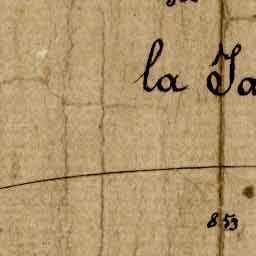 la Ja
853